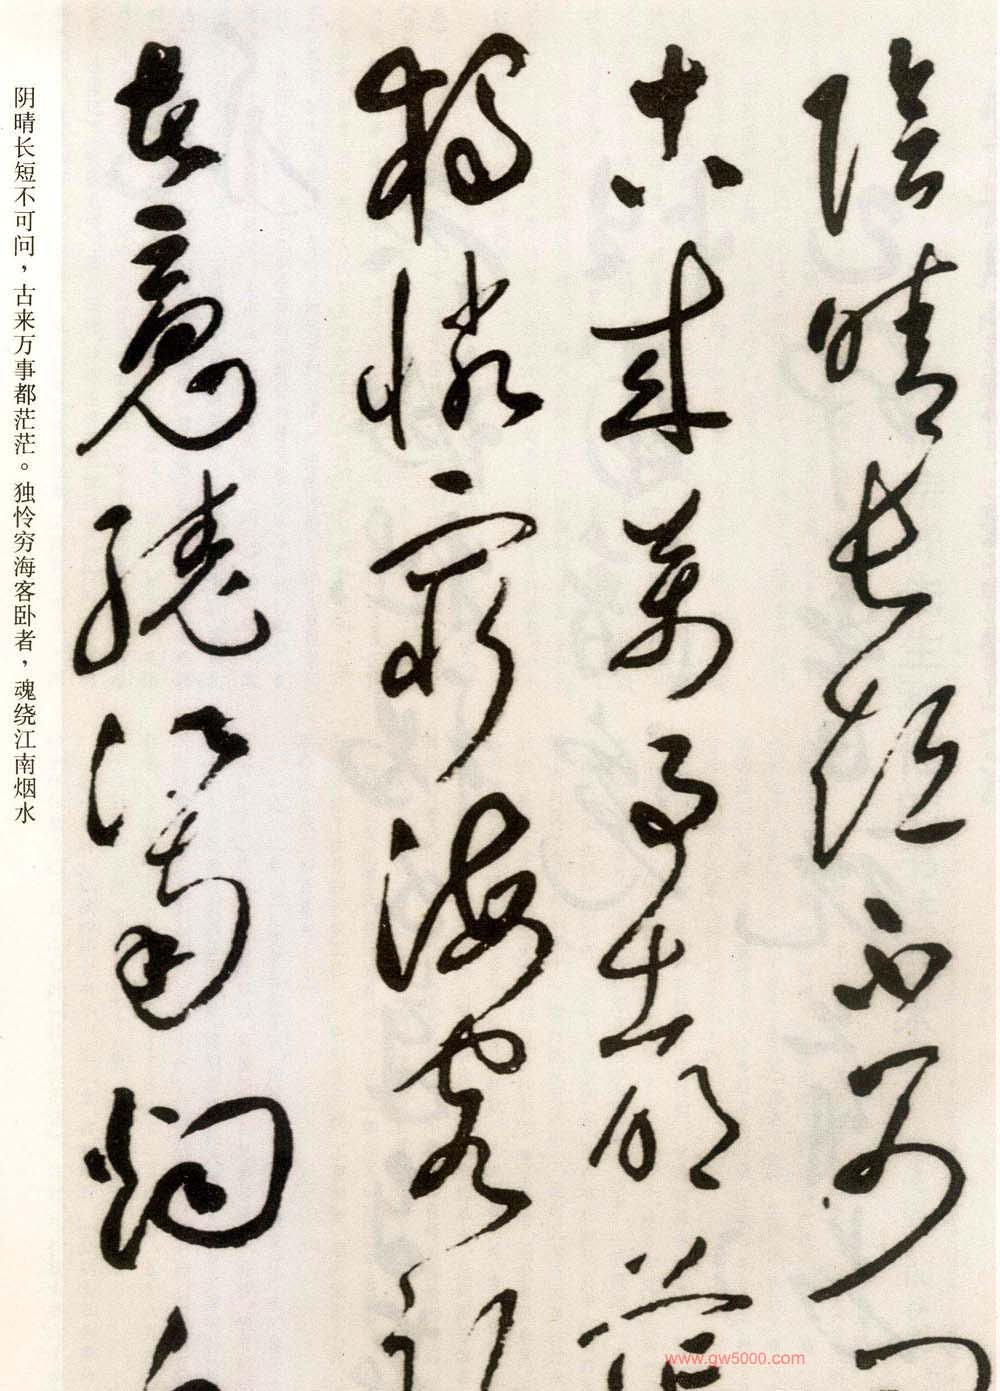 陰晴長短不可問
古來萬事都茫
獨憐窮海客臥
者魂繞江南烟水
阴晴长短不可问，古来万事都茫茫。独怜穷海客卧者，魂绕江南烟水
www.gw5000.com